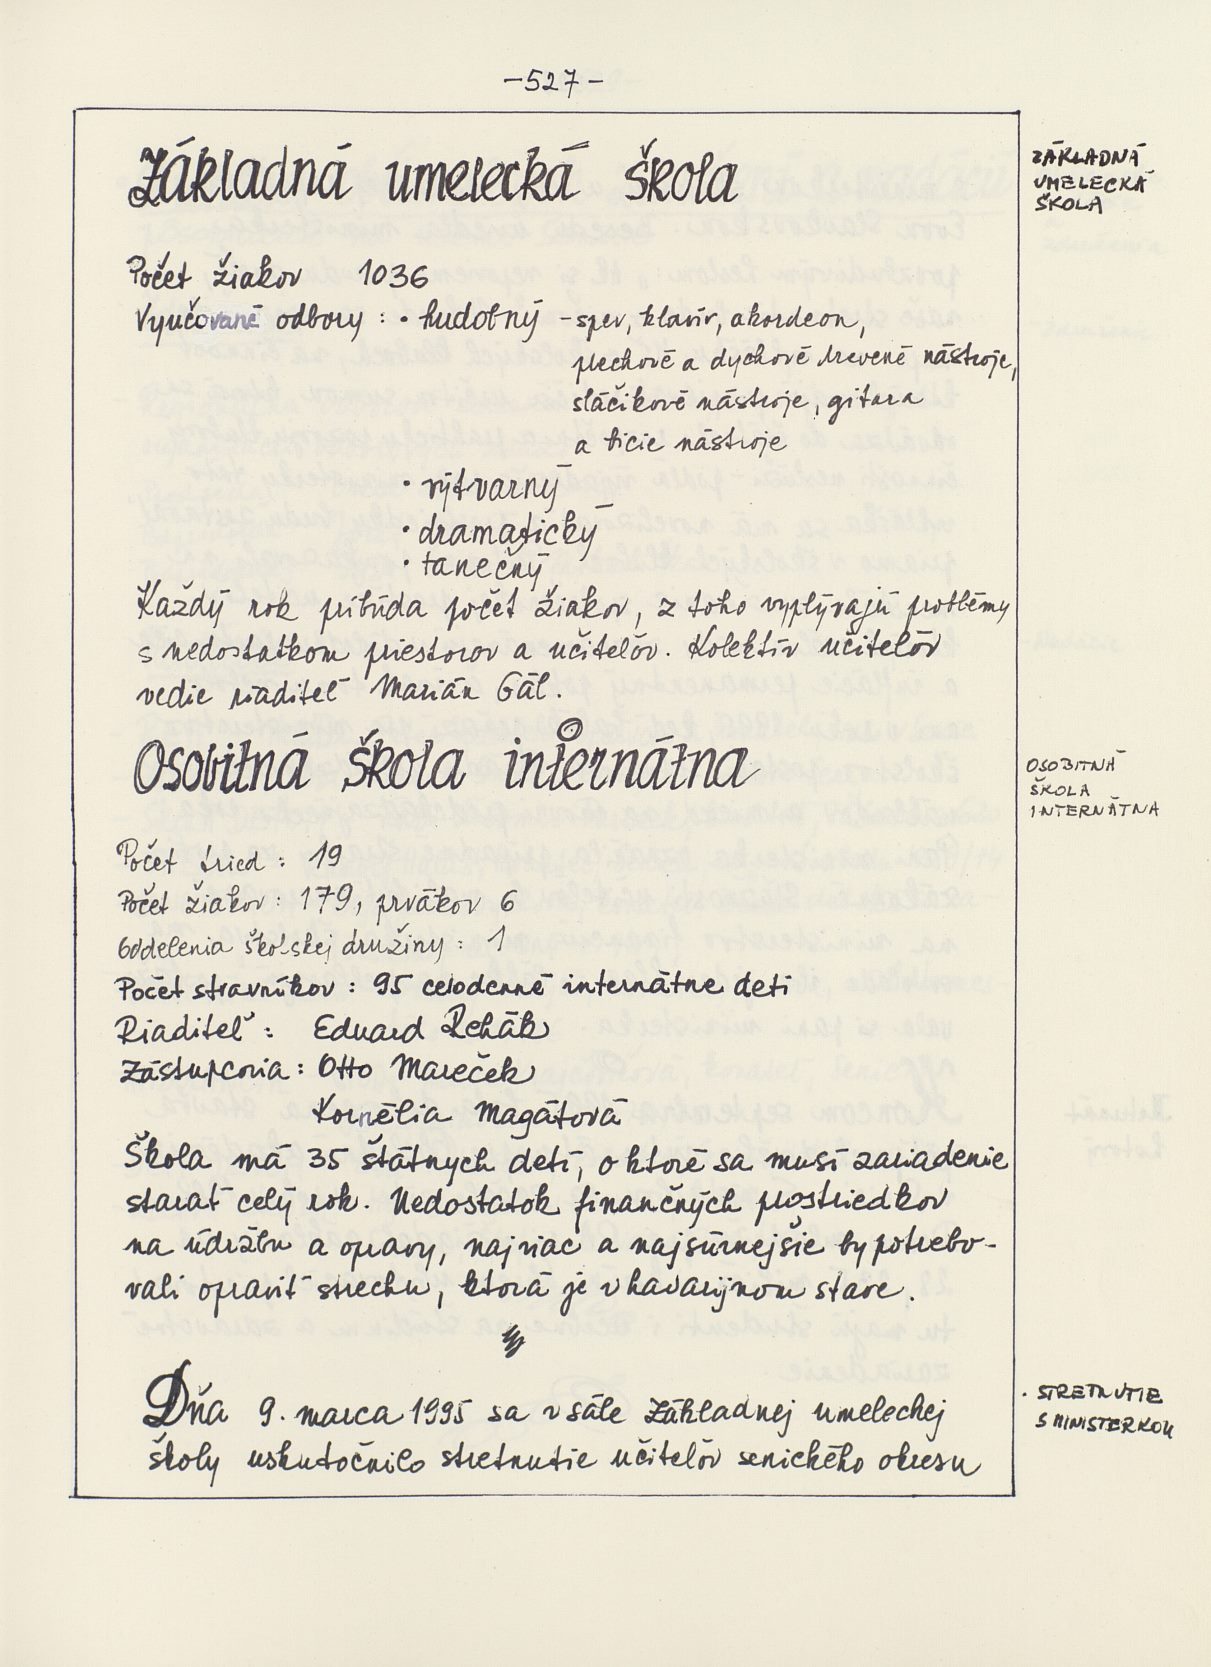 -527-
Základná umelecká škola
ZÁKLADNÁ
UMELECKÁ
ŠKOLA
Počet žiakov 1036
Vyučované odbory : • hudobný - spev, klavír, akordeon,
plechové a dychové drevené nástroje,
sláčikové nástroje, gitara
a bicie nástroje
• výtvarný
• dramatický
• tanečný
Každý rok pribúda počet žiakov, z toho vyplývajú problémy
s nedostatkom priestorov a učitelóv. Kolektív učitelóv
vedie riaditeľ Marián Gál.
Osobitná škola internátna
OSOBITNÁ
ŠKOLA
INTERNÁTNA
Počet tried : 19
Počet žiakov : 179, prvákov 6
Oddelenia školskej družiny : 1
Počet stravníkov : 95 celodenné internátne deti
Riaditeľ : Eduard Rehák
Zástupcovia : Otto Mareček
Kornélia Magátová
Škola má 35 štátnych detí, o ktoré sa musí zariadenie
starať celý rok. Nedostatok finančných prostriedkov
na údržbu a opravy, najviac a najsúrnejšie by potrebo-
vali opraviť strechu, ktorá je v havarijnom stave.
Dňa 9. marca 1995 sa v sále Základnej umeleckej
školy uskutočnilo stretnutie učitelóv senického okresu
• STRETNUTIE
S MINISTERKOU